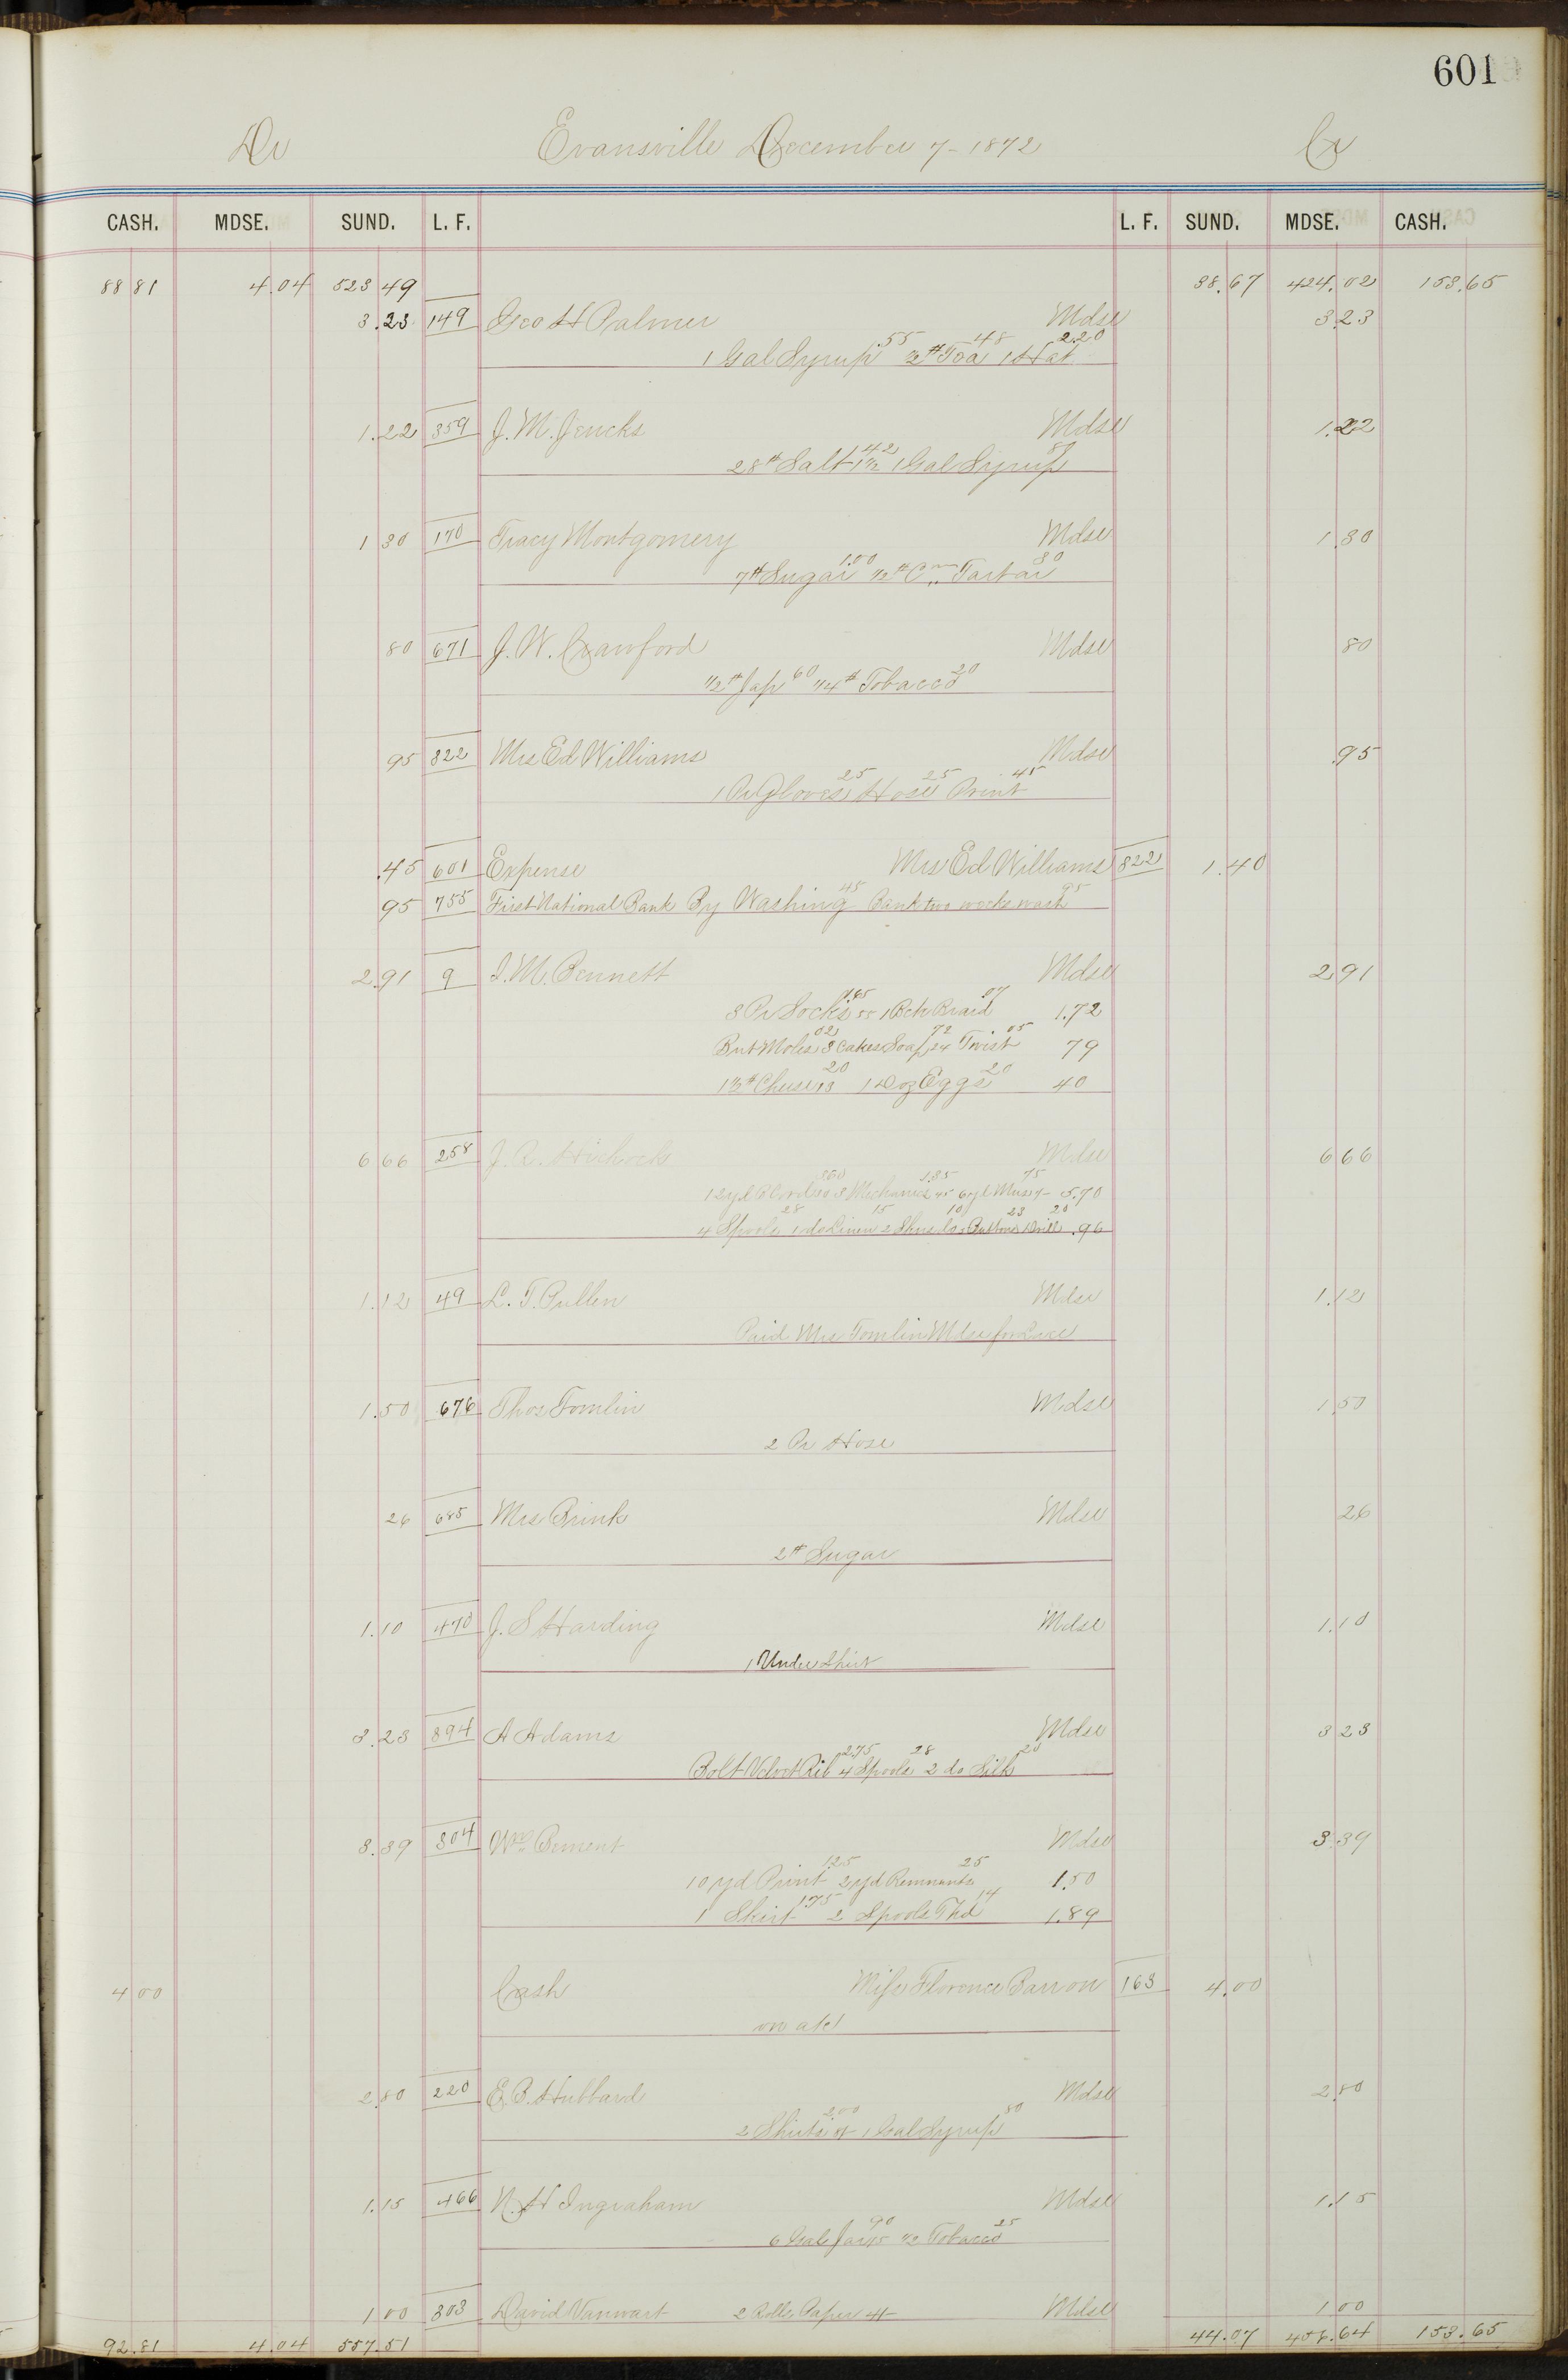 601
Dr Evansville December 7 - 1872 Cr
CASH. MDSE. SUND. L. F. L. F. SUND. MDSE. CASH.
88 81 4.04 523 49 38.67 424.02 153.65
3.23 149 Geo H Palmer Mdse 3 23
1 Gal Syrup 55 ½# Tea 48 1 Hat 2.20
1.22 359 J. M. Jencks Mdse 1.22
28# Salt 1½ 42 1 Gal Syrup 80
1 30 170 Tracy Montgomery Mdse 1.30
7# Sugar 1.00 ½# Cm Tartar 30
80 671 J. W. Crawford Mdse 80
½# Jap 60 ¼# Tobacco 20
95 822 Mrs Ed Williams Mdse .95
1 Pr Gloves 25 Hose 25 Print 45
.45 601 Expense Mrs Ed Williams 822 1.40
95 755 First National Bank By Washing 45 Bank two weeks wash 95
2.91 9 I. M. Bennett Mdse 2.91
3 Pr Socks 55 1.65 1 Bch Braid .07 1.72
But Molds 02 3 Cakes Soap 24 72 Twist 05 79
1⅓# Cheese 18 20 1 Doz Eggs 20 40
6 66 258 J. R. Hickock Mdse 6 66
12 yd B Cord 30 3 60 3 Mechanics 45 1.35 6 yd Mus 75 5.70
4 Spools 28 1 do Linen 15 2 Shoe La 10 Buttons 23 Drill 20 .96
1.12 49 L. T. Pullen Mdse 1.12
Paid Mrs Tomlin Mdse for Lace
1.50 676 Thos Tomlin Mdse 1 50
2 Pr Hose
26 685 Mrs Brink Mdse 26
2# Sugar
1.10 470 J. S Harding Mdse 1.10
1 Under Shirt
3.23 894 A Adams Mdse 3 23
Bolt Velvet Rib 2.75 4 Spools 28 2 do Silk 20
3.39 304 Wm Bement Mdse 3 39
10 yd Print 1.25 2 yd Remnants 25 1.50
1 Skirt 1.75 2 Spools Thd 14 1.89
4 00 Cash Miss Florence Barron 163 4.00
on a/c
2.80 220 E. B. Hubbard Mdse 2 80
2 Shirts 2.00 1 Gal Syrup 80
1.15 466 N. H Ingraham Mdse 1.15
6 Gal Jar 15 90 ½ Tobacco 25
1 00 303 David Vanwart 2 Rolls Paper Mdse 1 00
92.81 4.04 557.51 44.07 456.64 153.65